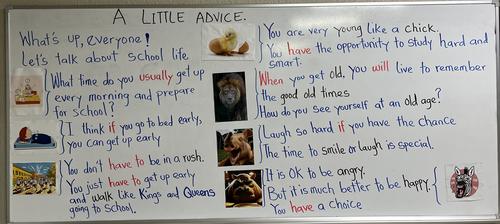 A LITTLE ADVICE.
What's up, everyone!
Let's talk about school life
What time do you usually get up
every morning and prepare
for school?
I think if you go to bed early,
you can get up early
You don't have to be in a rush.
You just have to get up early
and walk like Kings and Queens
going to school.
You are very young like a chick.
You have the opportunity to study hard and
smart.
When you get old, you will live to remember
the good old times
How do you see yourself at an old age?
Laugh so hard if you have the chance
The time to smile or laugh is special.
It is OK to be angry.
But it is much better to be happy.
You have a choice